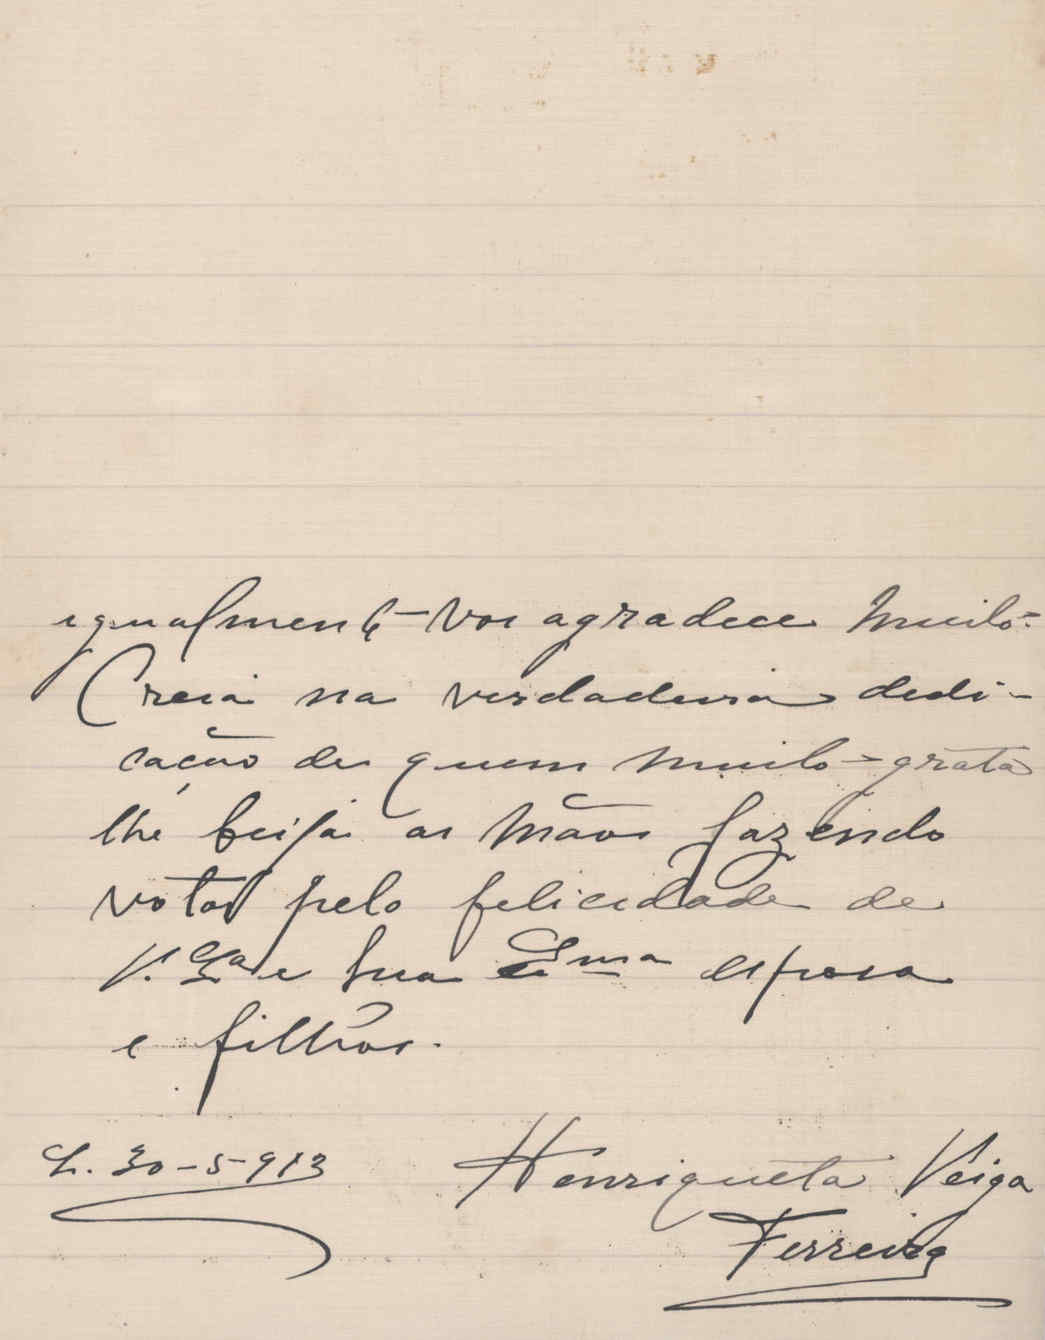 igualmente vos agradece muito.
Creia na verdadeira dedi-
cação de quem muito grata
lhe beija as mãos fazendo
votos pela felicidade de
V. Exª e sua Exma esposa
e filhos.
L. 30-5-913 Henriqueta Veiga
Ferreira